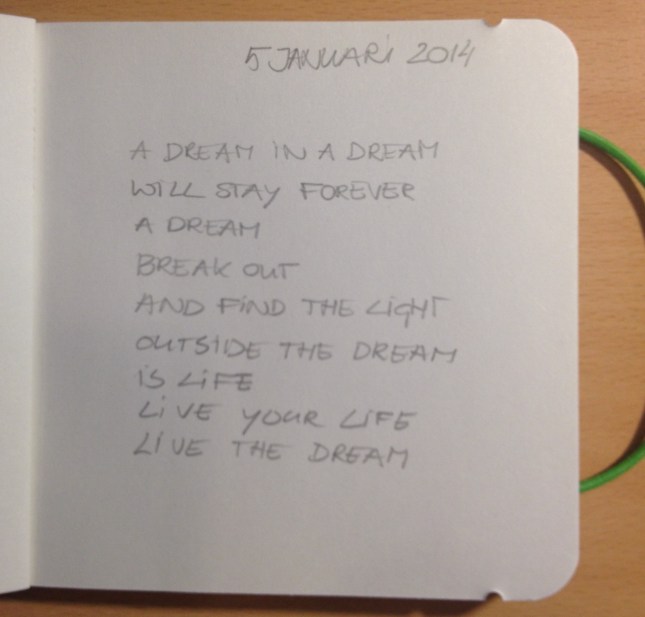 5 JANUARi 2014
A DREAM iN A DREAM
WiLL STAY FOREVER
A DREAM
BREAK OUT
AND FiND THE LiGHT
OUTSiDE THE DREAM
iS LiFE
LiVE YOUR LiFE
LiVE THE DREAM